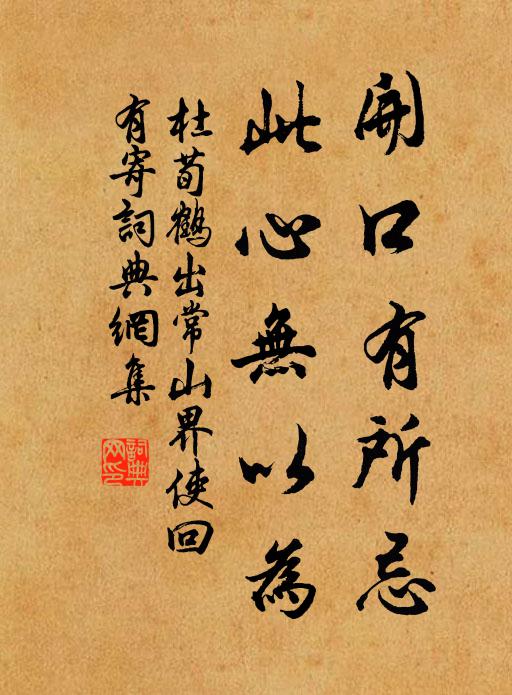 開口有所忌
此心無以為
杜荀鶴出常山界使回
有寄詞典網集
詞典網印